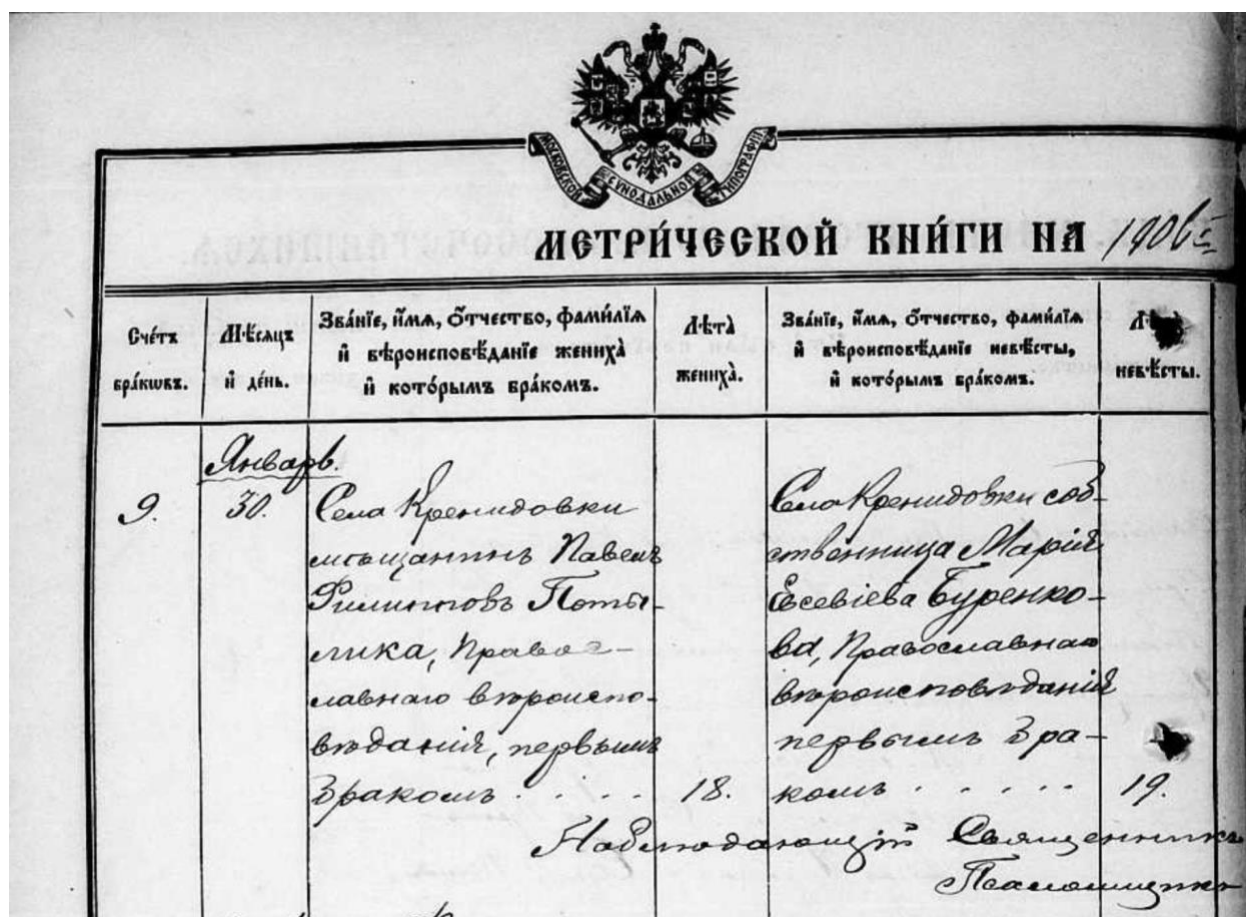 МОСКОВСКОЙ СѴНОДАЛЬНОЙ ТИПОГРАФІИ
МЕТРИ́ЧЕСКОЙ КНИ́ГИ НА 1906
Сче́тъ бра́кѡвъ.
Мѣ́сяцъ и҆ де́нь.
Зва́нїе, и҆́мѧ, ѻ҆́тчество, фами́лїѧ
и҆ вѣроисповѣ́данїе жениха̀
и҆ кото́рымъ бра́комъ.
Лѣта̀ жениха̀.
Зва́нїе, и҆́мѧ, ѻ҆́тчество, фами́лїѧ
и҆ вѣроисповѣ́данїе невѣ́сты,
и҆ кото́рымъ бра́комъ.
невѣ́сты.
Январь.
9.
30.
Села Кренидовки
мѣщанинъ Павелъ
Филипповъ Поты-
лика, Правос-
лавнаго вѣроиспо-
вѣданія, первымъ
бракомъ . . . .
18.
Села Кренидовки соб-
ственница Марія
Евсевіева Буренко-
ва, Православнаго
вѣроисповѣданія
первымъ бра-
комъ . . . . .
19.
Наблюдающій Священникъ